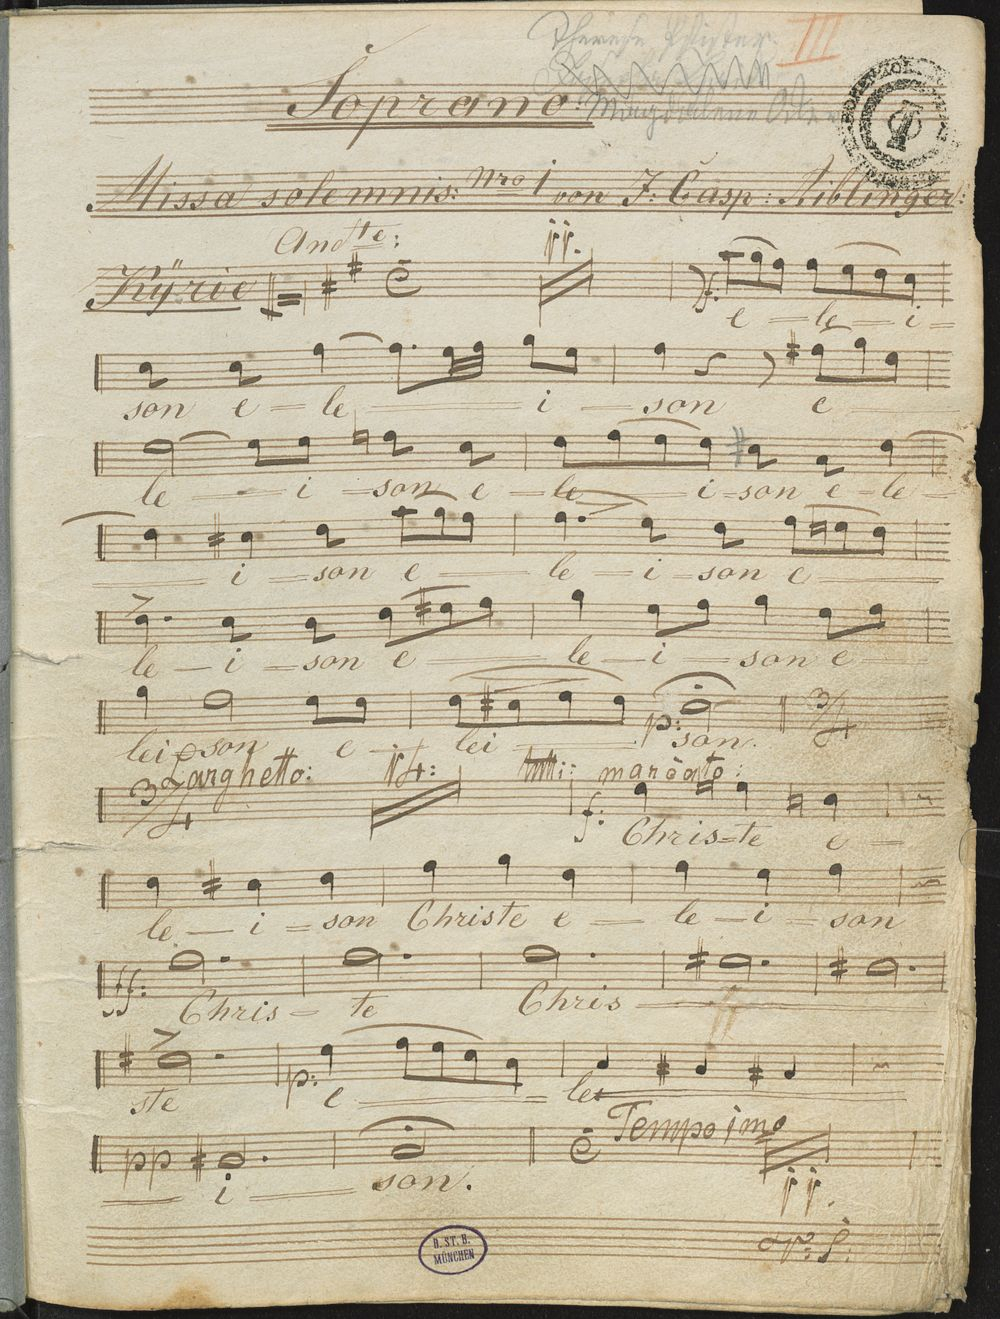 Therese Pfister III
Magdalena
Soprano
HOHENZOL
Missa solemnis: Nro 1 von J: Casp: Aiblinger:
Andte:
Kÿrie 11. f. e - le - i -
son e - le - i - son e
le - i - son e - le - i - son e - le -
i - son e - le - i - son e
le - i - son e - le - i - son e
lei son e - lei p: son. 3/4
Larghetto: 14: tutti: marcato:
3/4 f: Chris - te e -
le - i - son Christe e - le - i - son
ff: Chris - te Chris
ff
ste p: e le
Tempo imo
pp i son. 11.
V: S:
B. ST. B.
MÜNCHEN